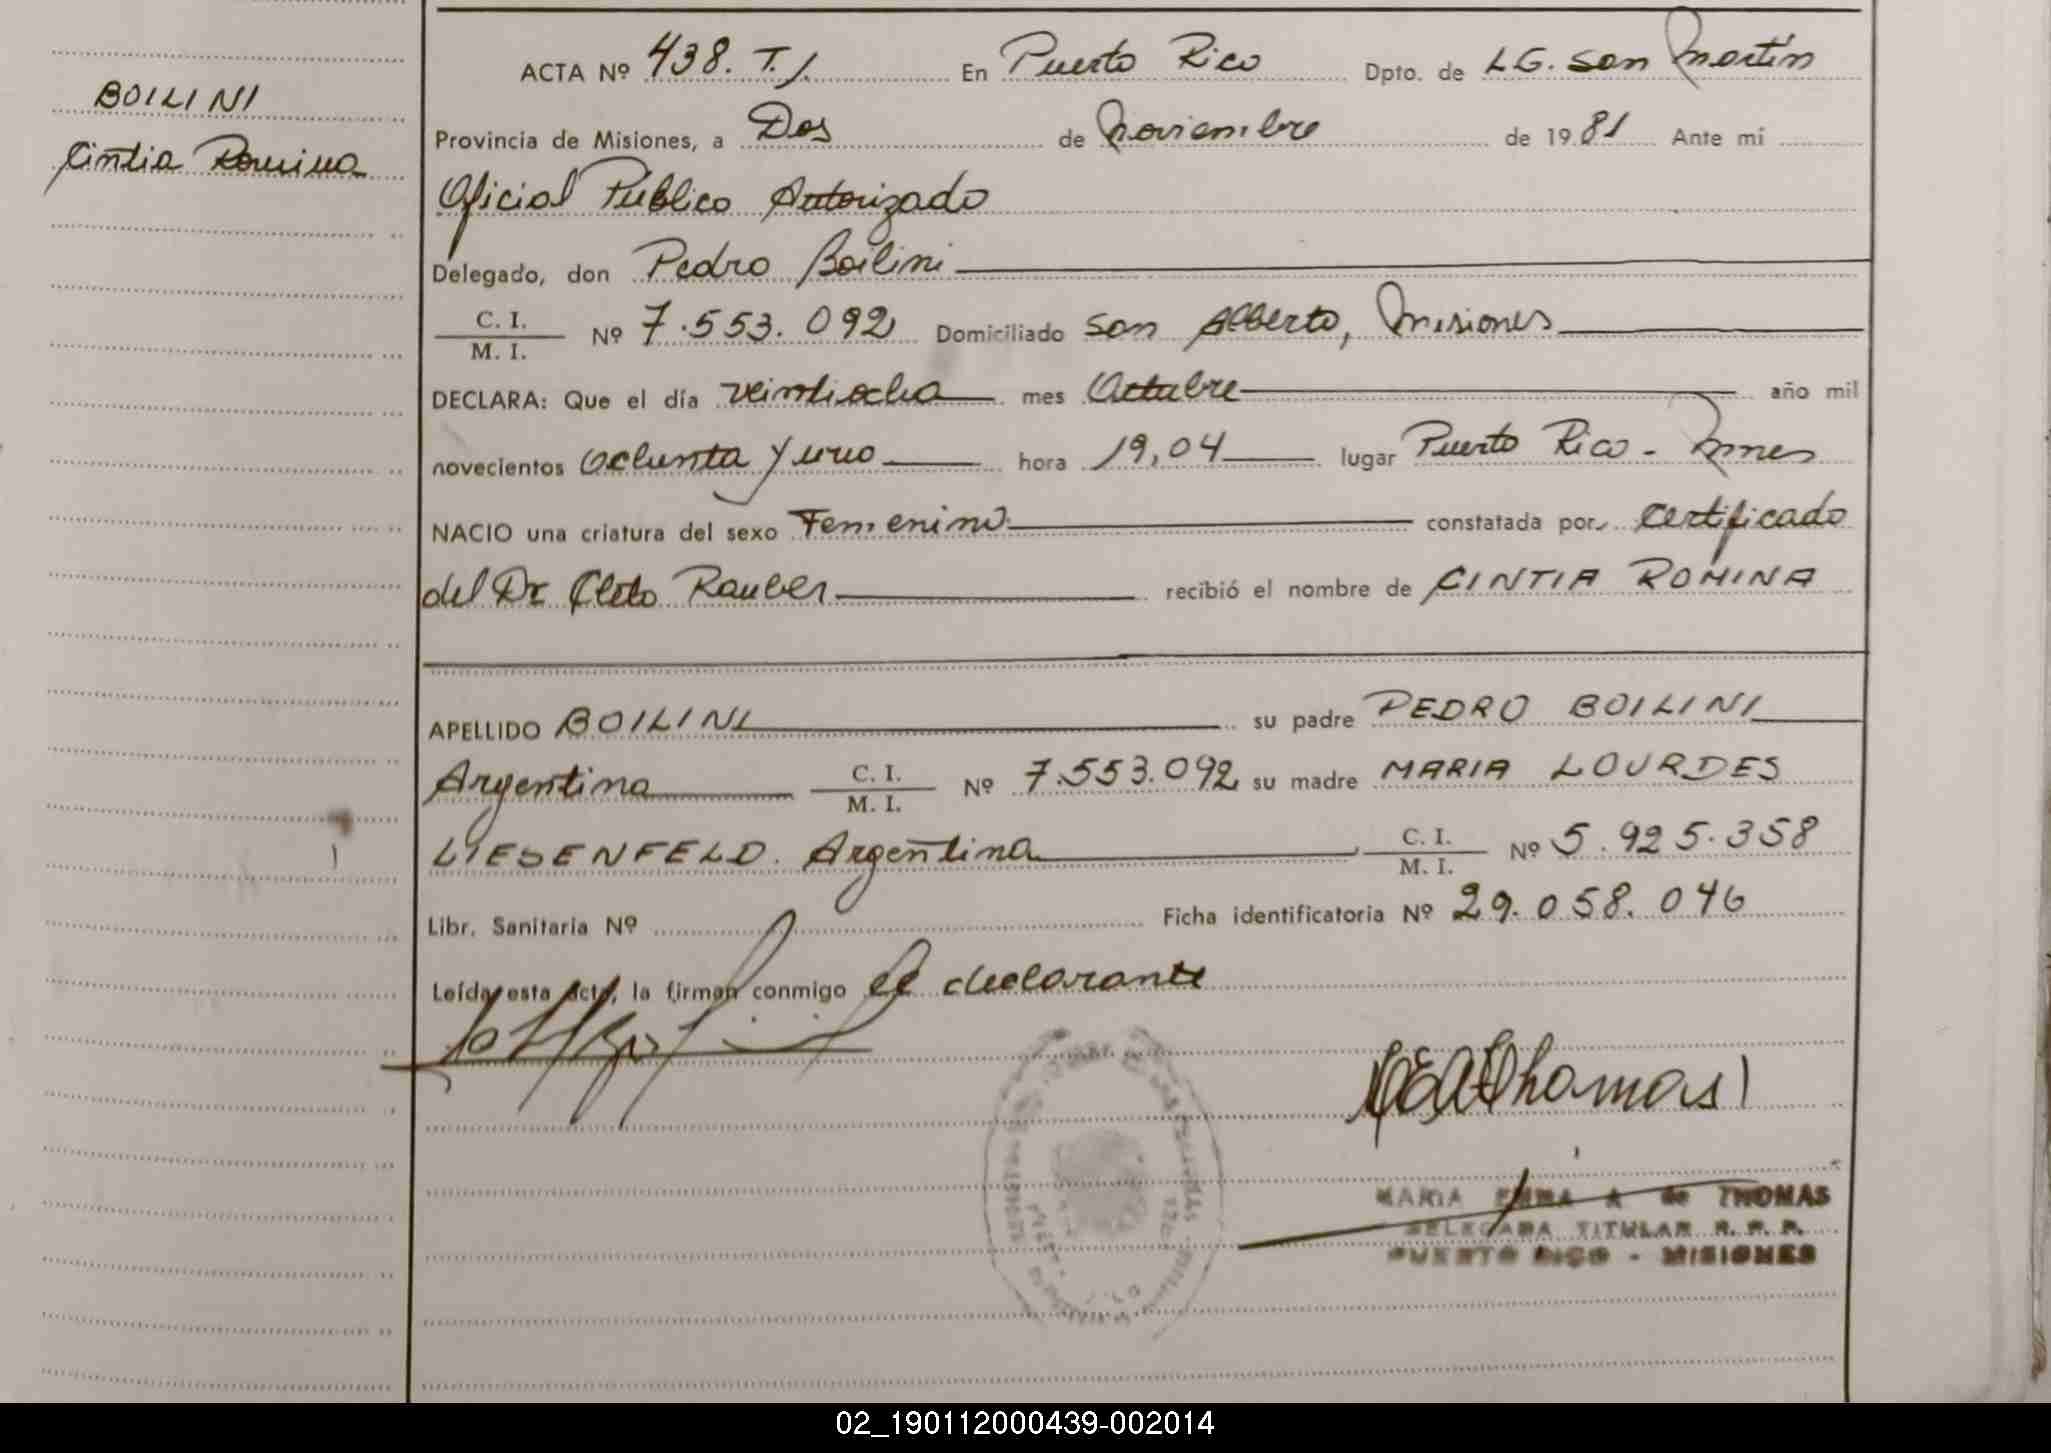 BOILINI
Cintia Romina
ACTA Nº 438. T. I. En Puerto Rico Dpto. de L.G. San Martín
Provincia de Misiones, a Dos de noviembre de 1981 Ante mí
Oficial Público Autorizado
Delegado, don Pedro Boilini
C. I.
M. I. Nº 7.553.092 Domiciliado San Alberto, Misiones
DECLARA: Que el día veintiocho mes Octubre año mil
novecientos ochenta y uno hora 19,04 lugar Puerto Rico - Mnes
NACIO una criatura del sexo Femenino constatada por Certificado
del Dr Cleto Rauber recibió el nombre de CINTIA ROMINA
APELLIDO BOILINI su padre PEDRO BOILINI
Argentina C. I. M. I. Nº 7.553.092 su madre MARIA LOURDES
LIESENFELD. Argentina C. I. M. I. Nº 5.925.358
Libr. Sanitaria Nº Ficha identificatoria Nº 29.058.046
Leída esta acta, la firman conmigo el declarante
MEA Thomas
MARIA EMMA A de THOMAS
DELEGADA TITULAR R. P. P.
PUERTO RICO - MISIONES
02_190112000439-002014